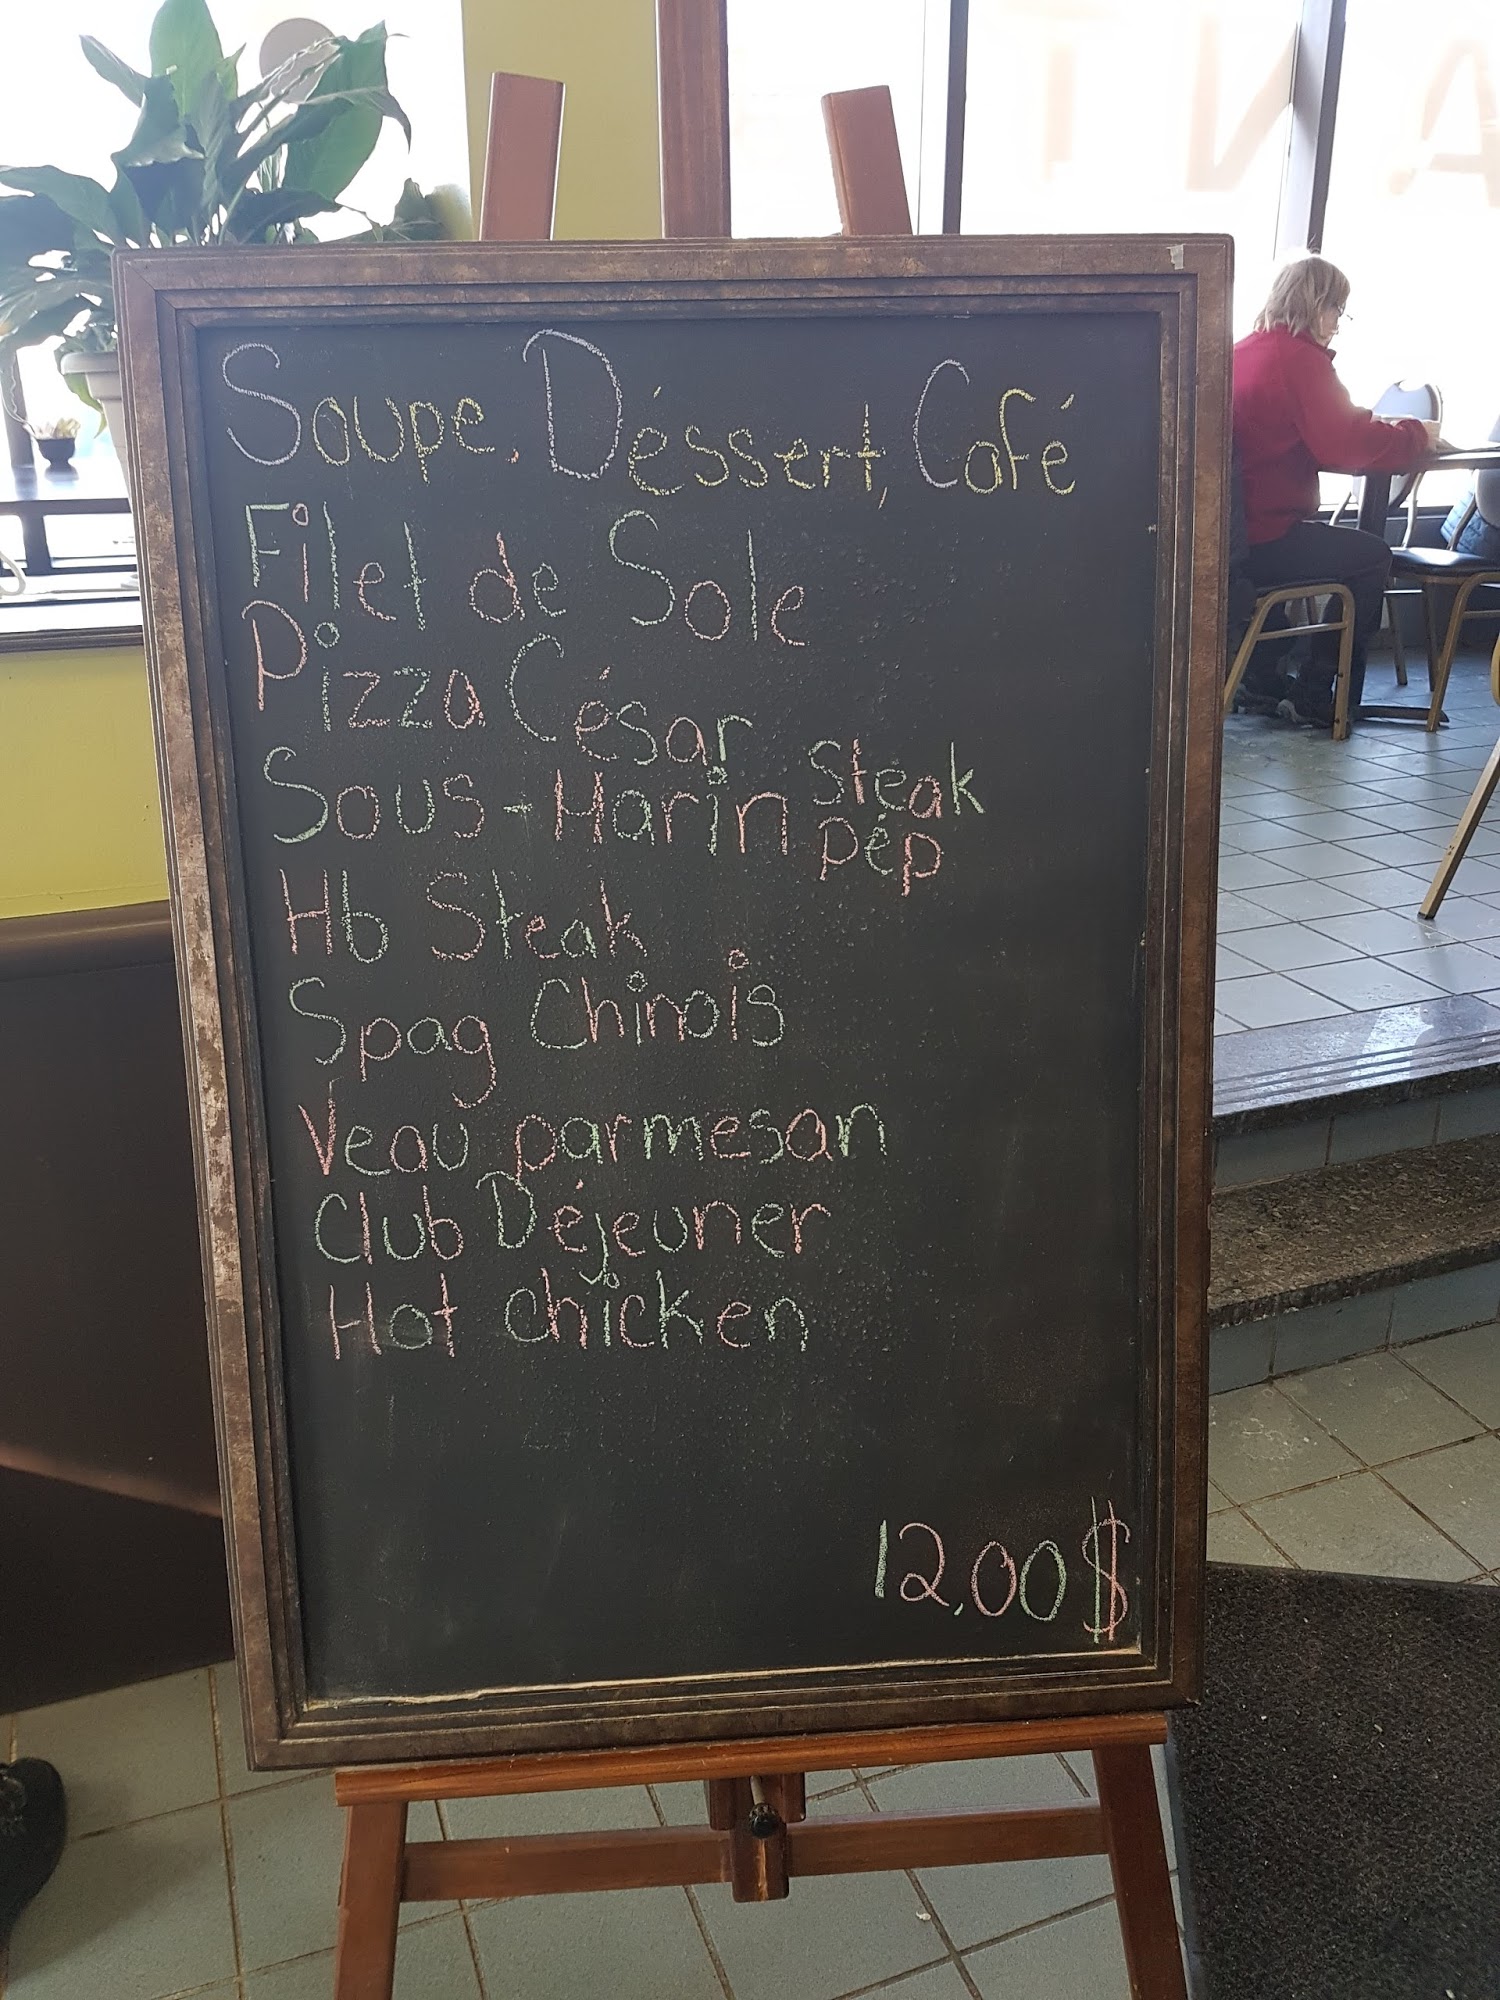 Soupe, Déssert, Café
Filet de Sole
Pizza César
Sous-Marin Steak
pép
Hb Steak
Spag Chinois
Veau parmesan
Club Déjeuner
Hot chicken
12,00$